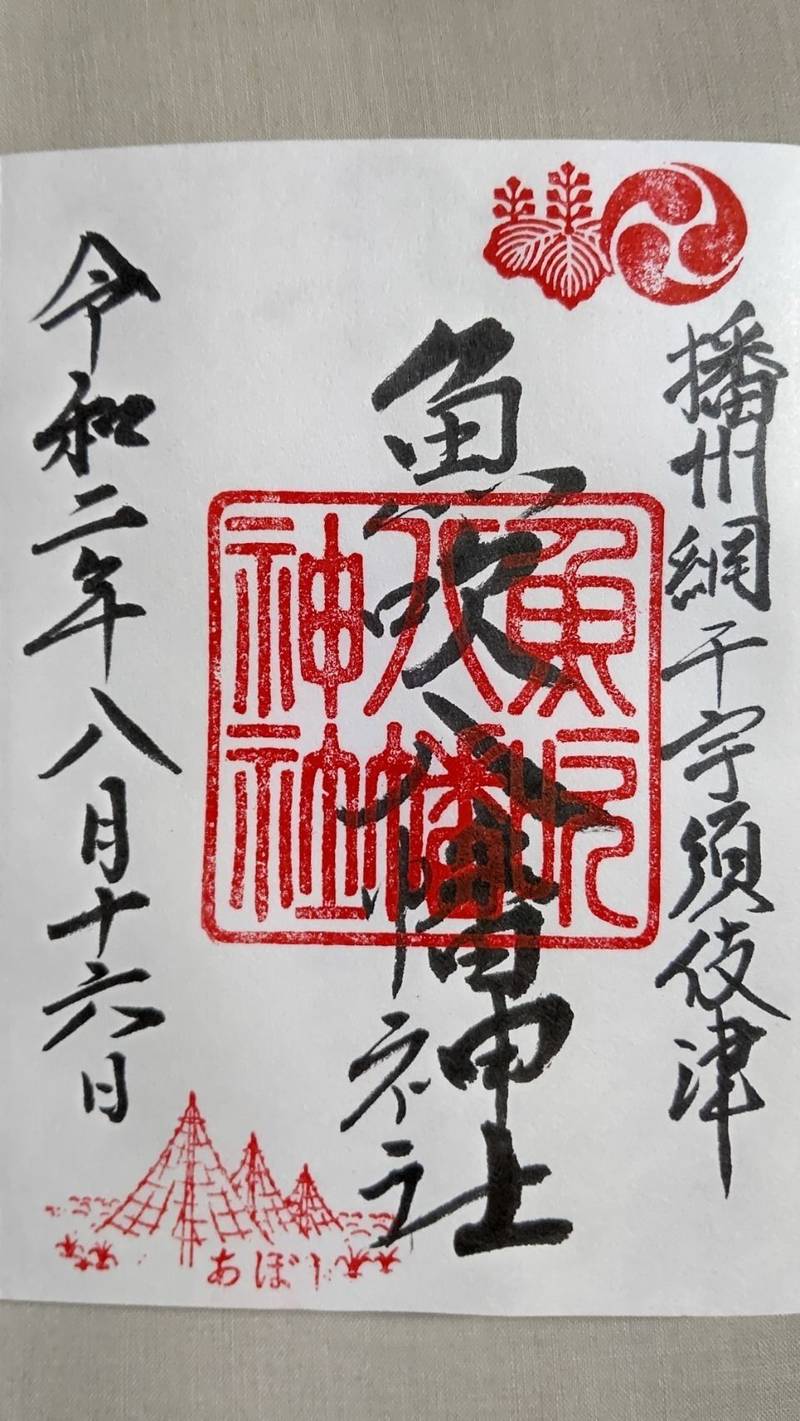 播州網干宇須伎津
魚吹八幡神社
魚吹八幡神社
令和二年八月十六日
あぼし